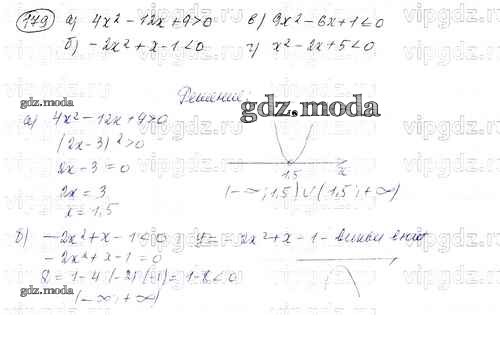 179 а) 4x² - 12x + 9 > 0 в) 9x² - 6x + 1 ≤ 0
б) -2x² + x - 1 < 0 г) x² - 2x + 5 < 0
Решение:
gdz.moda
gdz.moda
а) 4x² - 12x + 9 > 0
(2x - 3)² > 0
2x - 3 = 0
2x = 3
x = 1,5
1,5 x
(-∞; 1,5) ∪ (1,5; +∞)
б) -2x² + x - 1 < 0; y = -2x² + x - 1 - ветви вниз
-2x² + x - 1 = 0
D = 1 - 4·(-2)·(-1) = 1 - 8 < 0
(-∞; +∞)
gdz.moda